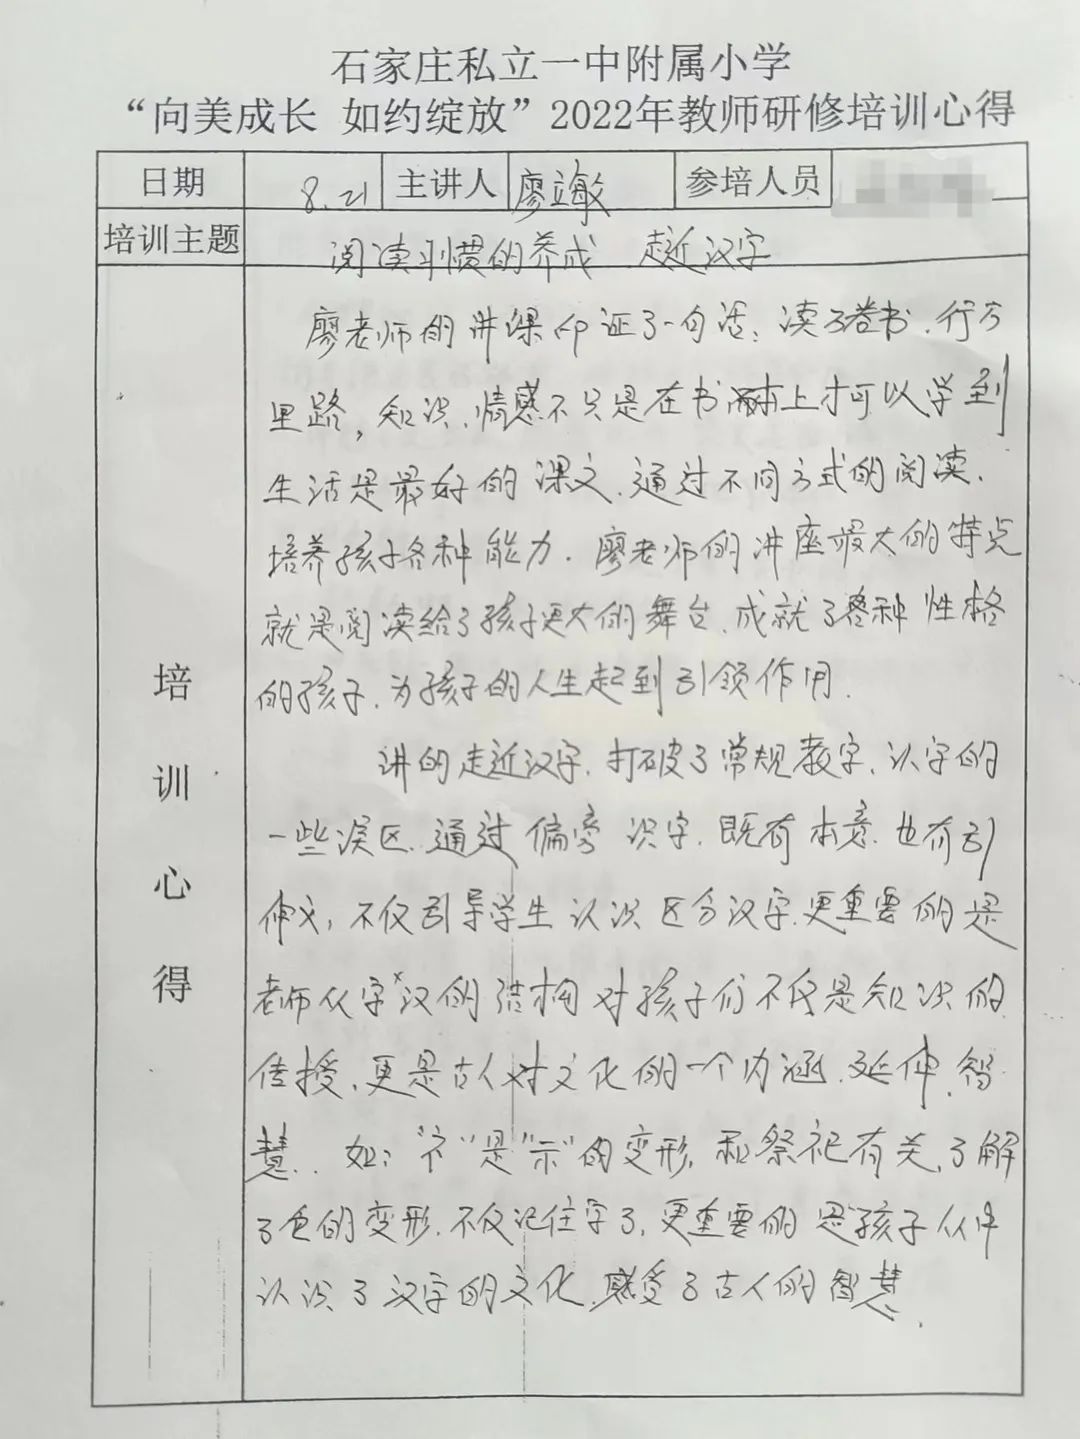 石家庄私立一中附属小学
“向美成长 如约绽放”2022年教师研修培训心得
日期 8.21 主讲人 廖立敏 参培人员
培训主题 阅读习惯的养成 走近汉字
培训心得
廖老师的讲课印证了一句话：读万卷书，行万
里路，知识、情感不只是在书本上才可以学到
生活是最好的课文，通过不同方式的阅读，
培养孩子各种能力．廖老师的讲座最大的特点
就是阅读给了孩子更大的舞台，成就了各种性格
的孩子，为孩子的人生起到引领作用．
讲的走近汉字，打破了常规教字、认字的
一些误区，通过偏旁识字，既有本意，也有引
伸义，不仅引导学生认识区分汉字，更重要的是
老师从字汉的结构对孩子们不仅是知识的
传授，更是古人对文化的一个内涵、延伸、智
慧．如：“礻”是“示”的变形，和祭祀有关，了解
了它的变形，不仅记住字了，更重要的是孩子从中
认识了汉字的文化，感受了古人的智慧．